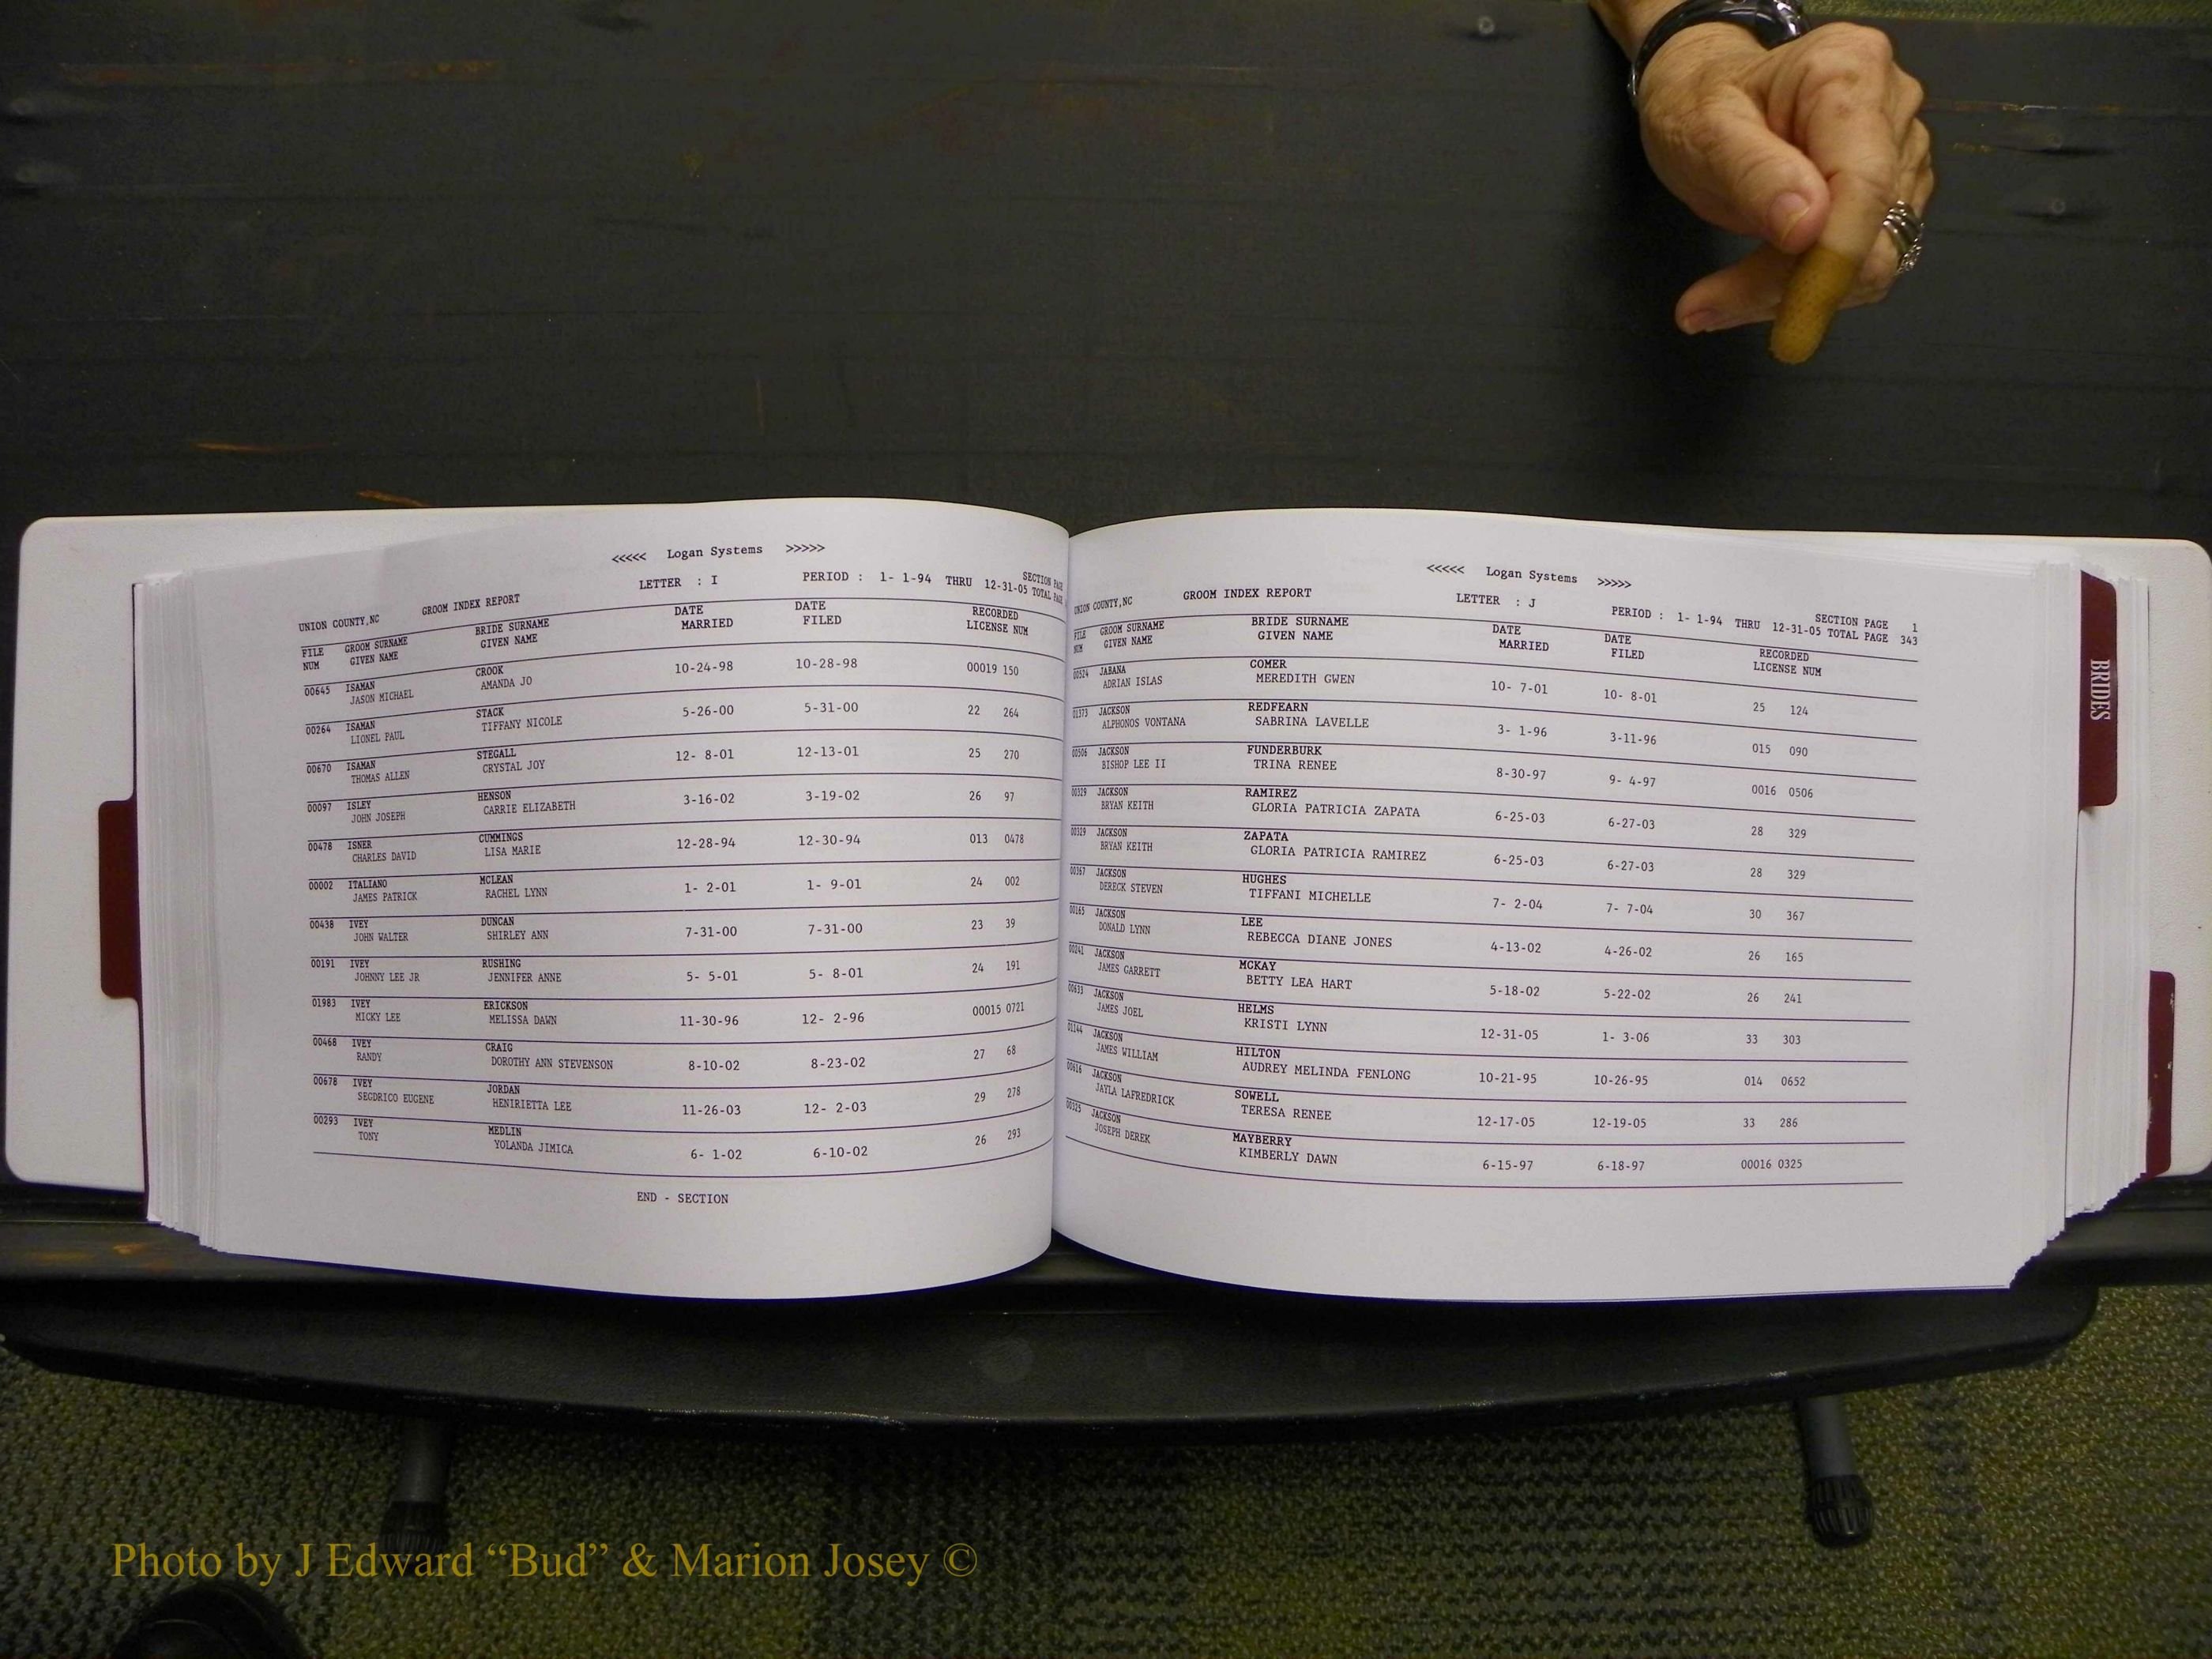 <<<<< Logan Systems >>>>>
UNION COUNTY,NC GROOM INDEX REPORT LETTER : I PERIOD : 1- 1-94 THRU 12-31-05 SECTION PAGE
TOTAL PAGE
FILE GROOM SURNAME BRIDE SURNAME DATE DATE RECORDED
NUM GIVEN NAME GIVEN NAME MARRIED FILED LICENSE NUM
00645 ISAMAN CROOK 10-24-98 10-28-98 00019 150
JASON MICHAEL AMANDA JO
00264 ISAMAN STACK 5-26-00 5-31-00 22 264
LIONEL PAUL TIFFANY NICOLE
00670 ISAMAN STEGALL 12- 8-01 12-13-01 25 270
THOMAS ALLEN CRYSTAL JOY
00097 ISLEY HENSON 3-16-02 3-19-02 26 97
JOHN JOSEPH CARRIE ELIZABETH
00478 ISNER CUMMINGS 12-28-94 12-30-94 013 0478
CHARLES DAVID LISA MARIE
00002 ITALIANO MCLEAN 1- 2-01 1- 9-01 24 002
JAMES PATRICK RACHEL LYNN
00438 IVEY DUNCAN 7-31-00 7-31-00 23 39
JOHN WALTER SHIRLEY ANN
00191 IVEY RUSHING 5- 5-01 5- 8-01 24 191
JOHNNY LEE JR JENNIFER ANNE
01983 IVEY ERICKSON 11-30-96 12- 2-96 00015 0721
MICKY LEE MELISSA DAWN
00468 IVEY CRAIG 8-10-02 8-23-02 27 68
RANDY DOROTHY ANN STEVENSON
00678 IVEY JORDAN 11-26-03 12- 2-03 29 278
SEGDRICO EUGENE HENIRIETTA LEE
00293 IVEY MEDLIN 6- 1-02 6-10-02 26 293
TONY YOLANDA JIMICA
END - SECTION
<<<<< Logan Systems >>>>>
UNION COUNTY,NC GROOM INDEX REPORT LETTER : J PERIOD : 1- 1-94 THRU 12-31-05 SECTION PAGE 1
TOTAL PAGE 343
FILE GROOM SURNAME BRIDE SURNAME DATE DATE RECORDED
NUM GIVEN NAME GIVEN NAME MARRIED FILED LICENSE NUM
00524 JABANA COMER 10- 7-01 10- 8-01 25 124
ADRIAN ISLAS MEREDITH GWEN
01373 JACKSON REDFEARN 3- 1-96 3-11-96 015 090
ALPHONOS VONTANA SABRINA LAVELLE
00506 JACKSON FUNDERBURK 8-30-97 9- 4-97 0016 0506
BISHOP LEE II TRINA RENEE
00329 JACKSON RAMIREZ 6-25-03 6-27-03 28 329
BRYAN KEITH GLORIA PATRICIA ZAPATA
00329 JACKSON ZAPATA 6-25-03 6-27-03 28 329
BRYAN KEITH GLORIA PATRICIA RAMIREZ
00367 JACKSON HUGHES 7- 2-04 7- 7-04 30 367
DERECK STEVEN TIFFANI MICHELLE
00165 JACKSON LEE 4-13-02 4-26-02 26 165
DONALD LYNN REBECCA DIANE JONES
00241 JACKSON MCKAY 5-18-02 5-22-02 26 241
JAMES GARRETT BETTY LEA HART
00633 JACKSON HELMS 12-31-05 1- 3-06 33 303
JAMES JOEL KRISTI LYNN
01144 JACKSON HILTON 10-21-95 10-26-95 014 0652
JAMES WILLIAM AUDREY MELINDA FENLONG
00616 JACKSON SOWELL 12-17-05 12-19-05 33 286
JAYLA LAFREDRICK TERESA RENEE
00325 JACKSON MAYBERRY 6-15-97 6-18-97 00016 0325
JOSEPH DEREK KIMBERLY DAWN
BRIDES
Photo by J Edward “Bud” & Marion Josey ©